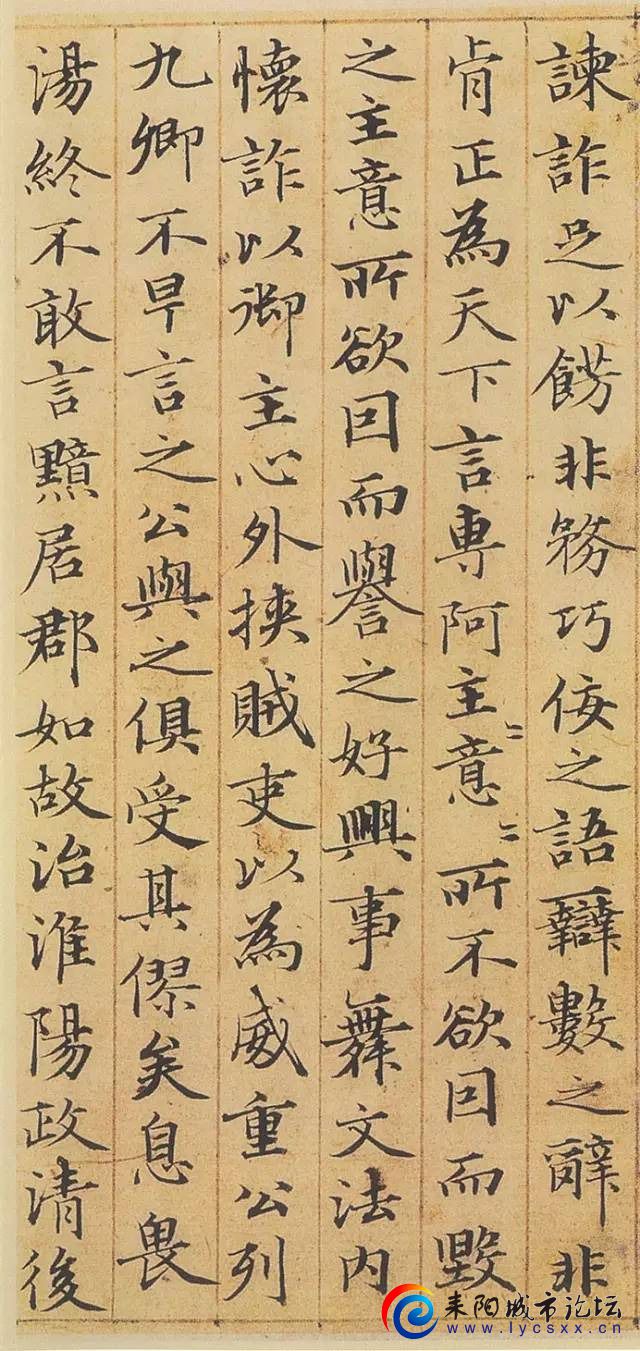 諫詐足以餝非務巧佞之語辯數之辭非
肯正為天下言專阿主〻意〻所不欲因而毀
之主意所欲因而譽之好興事舞文法内
懷詐以御主心外挾賊吏以為威重公列
九卿不早言之公與之俱受其僇矣息畏
湯終不敢言黯居郡如故治淮陽政清後
耒阳城市论坛
www.lycsxx.cn